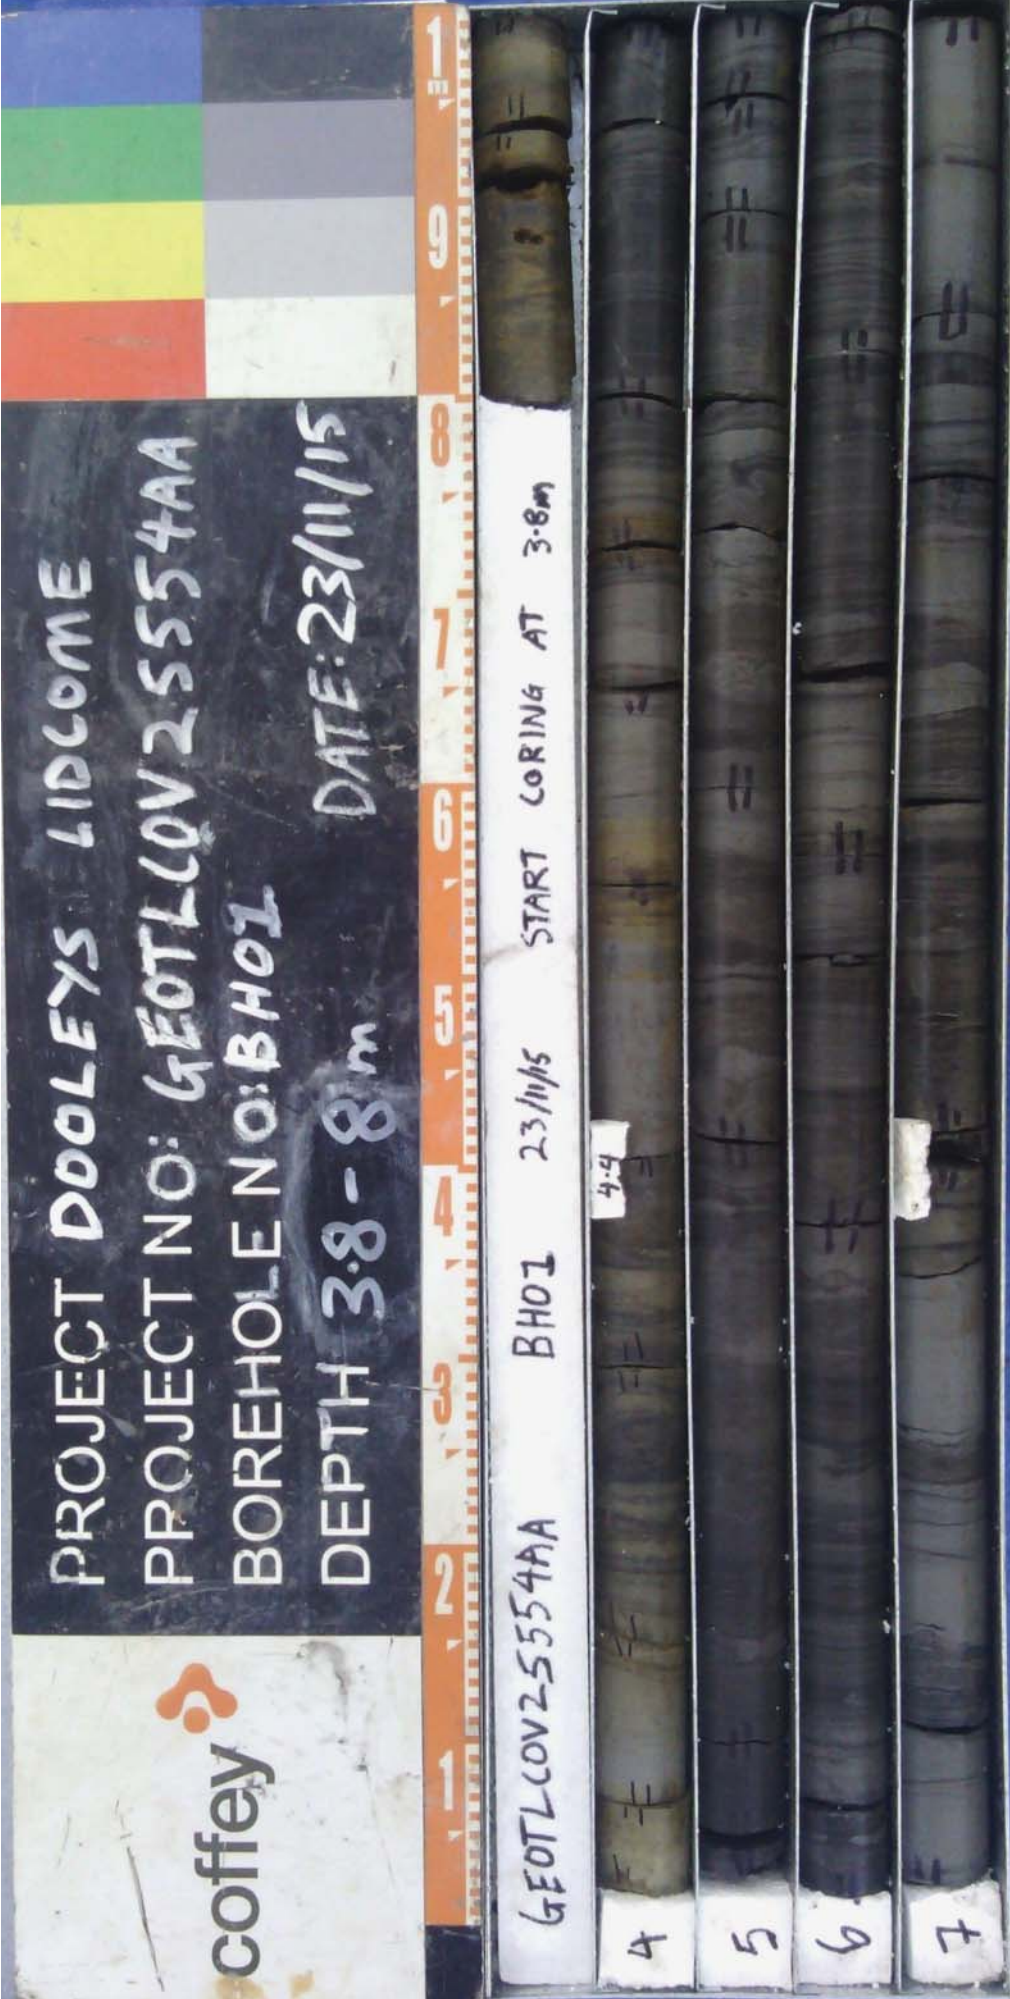 PROJECT DOOLEYS LIDCOME
PROJECT NO: GEOTLCOV25554AA
BOREHOLE NO: BH01
DEPTH 3.8-8m DATE: 23/11/15
coffey
1m
9
8
7
6
5
4
3
2
1
GEOTLCOV25554AA BH01 23/11/15 START CORING AT 3.8m
4.4
4
5
6
7